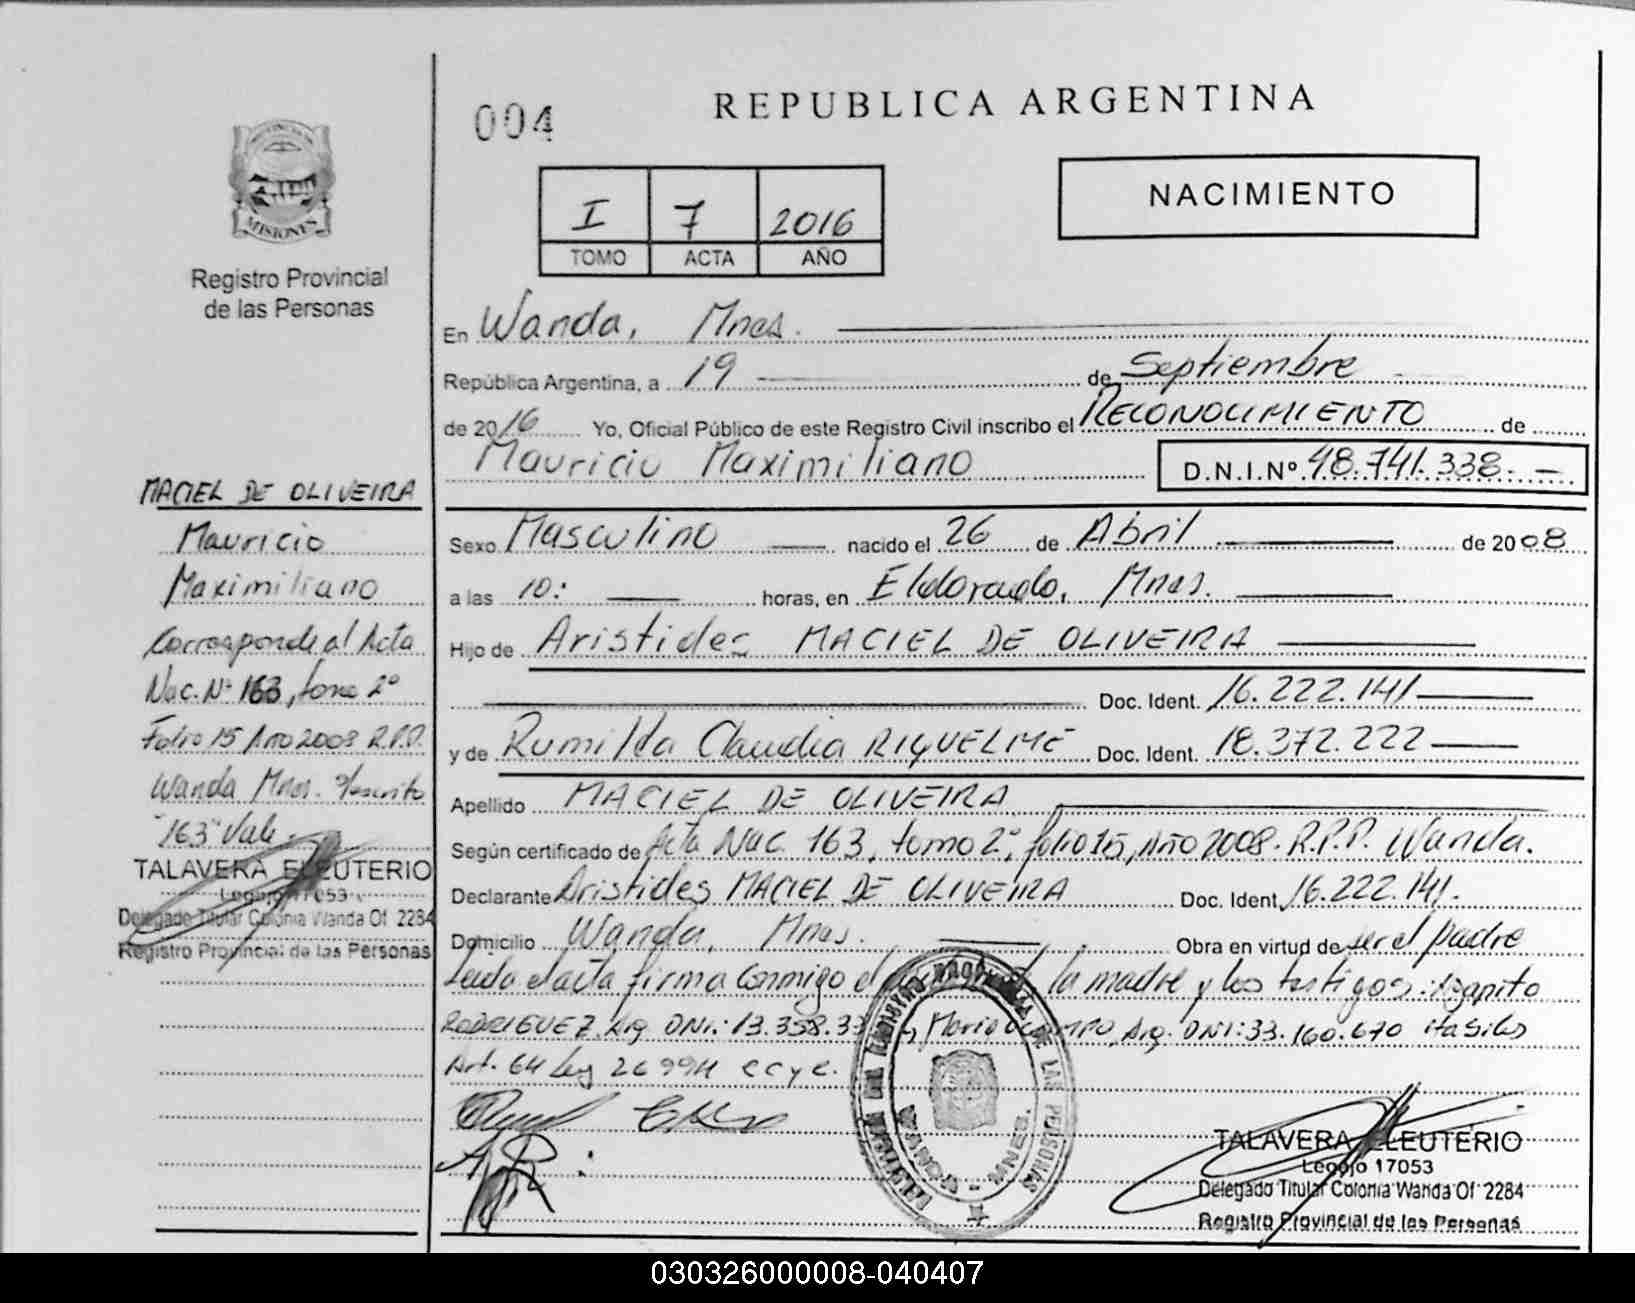 004
REPUBLICA ARGENTINA
NACIMIENTO
I 7 2016
TOMO ACTA AÑO
MISIONES
Registro Provincial
de las Personas
En Wanda, Mnes.
República Argentina, a 19 de Septiembre
de 2016 Yo, Oficial Público de este Registro Civil inscribo el RECONOCIMIENTO de
Mauricio Maximiliano D.N.I.Nº 48.741.338.-
Sexo Masculino nacido el 26 de Abril de 2008
a las 10: horas, en Eldorado, Mnes.
Hijo de Aristides MACIEL DE OLIVEIRA
Doc. Ident. 16.222.141
y de Rumilda Claudia RIQUELME Doc. Ident. 18.372.222
Apellido MACIEL DE OLIVEIRA
Según certificado de Acta Nac. 163, tomo 2°, folio 15, Año 2008. R.P.P. Wanda.
Declarante Aristides MACIEL DE OLIVEIRA Doc. Ident. 16.222.141.
Domicilio Wanda, Mnes. Obra en virtud de ser el padre
Leida el acta firma conmigo el la madre y los testigos: Agapito
RODRIGUEZ, Arg. DNI.: 13.358.33 y Mario Arg. DNI: 33.160.670
Art. 64 Ley 26994 CCyC.
MACIEL DE OLIVEIRA
Mauricio
Maximiliano
Corresponde al Acta
Nac. Nº 163, tomo 2°
Folio 15 Año 2008 R.P.P.
Wanda Mnes.
"163" Vale.
TALAVERA ELEUTERIO
Legajo 17053
Delegado Titular Colonia Wanda Of 2284
Registro Provincial de las Personas
WANDA - MNES.
TALAVERA ELEUTERIO
Legajo 17053
Delegado Titular Colonia Wanda Of 2284
Registro Provincial de las Personas
030326000008-040407